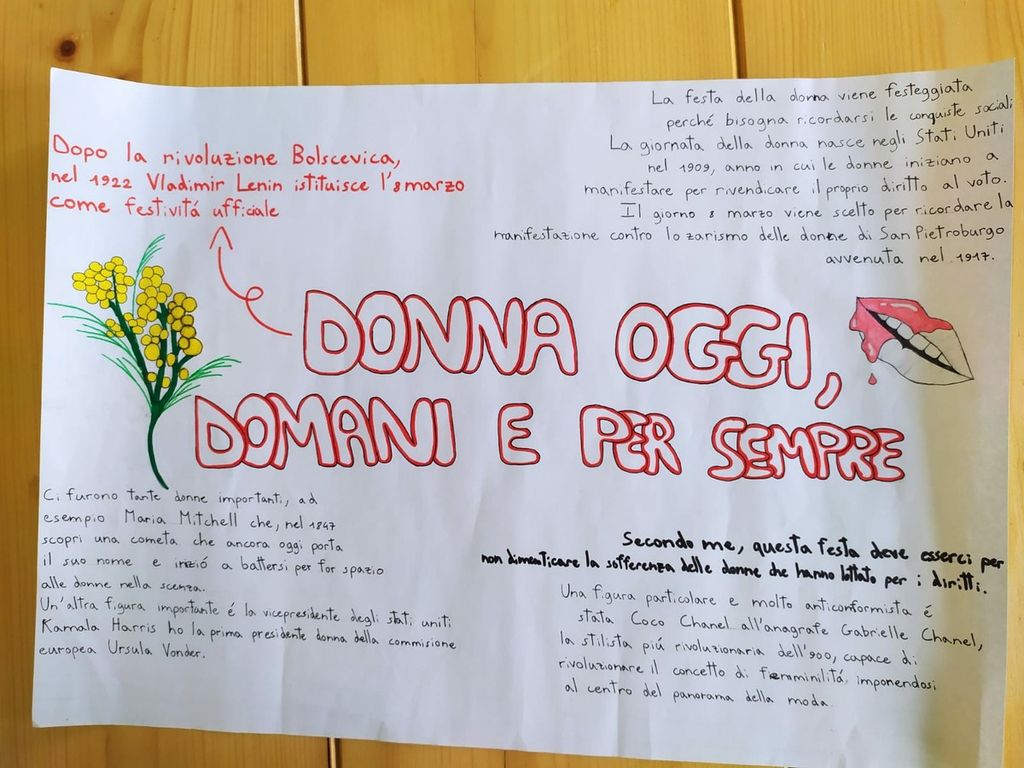 Dopo la rivoluzione Bolscevica,
nel 1922 Vladimir Lenin istituisce l'8 marzo
come festivitá ufficiale
La festa della donna viene festeggiata
perché bisogna ricordarsi le conquiste sociali
La giornata della donna nasce negli Stati Uniti
nel 1909, anno in cui le donne iniziano a
manifestare per rivendicare il proprio diritto al voto.
Il giorno 8 marzo viene scelto per ricordare la
manifestazione contro lo zarismo delle donne di San Pietroburgo
avvenuta nel 1917.
DONNA OGGI,
DOMANI E PER SEMPRE
Ci furono tante donne importanti, ad
esempio Maria Mitchell che, nel 1847
scopri una cometa che ancora oggi porta
il suo nome e iniziò a battersi per far spazio
alle donne nella scenza.
Un'altra figura importante é la vicepresidente degli stati uniti
Kamala Harris ho la prima presidente donna della commisione
europea Ursula Vonder.
Secondo me, questa festa deve esserci per
non dimenticare la sofferenza delle donne che hanno lottato per i diritti.
Una figura particolare e molto anticonformista é
stata Coco Chanel all'anagrafe Gabrielle Chanel,
la stilista piú rivoluzionaria dell'900, capace di
rivoluzionare il concetto di femminilitá, imponendosi
al centro del panorama della moda.